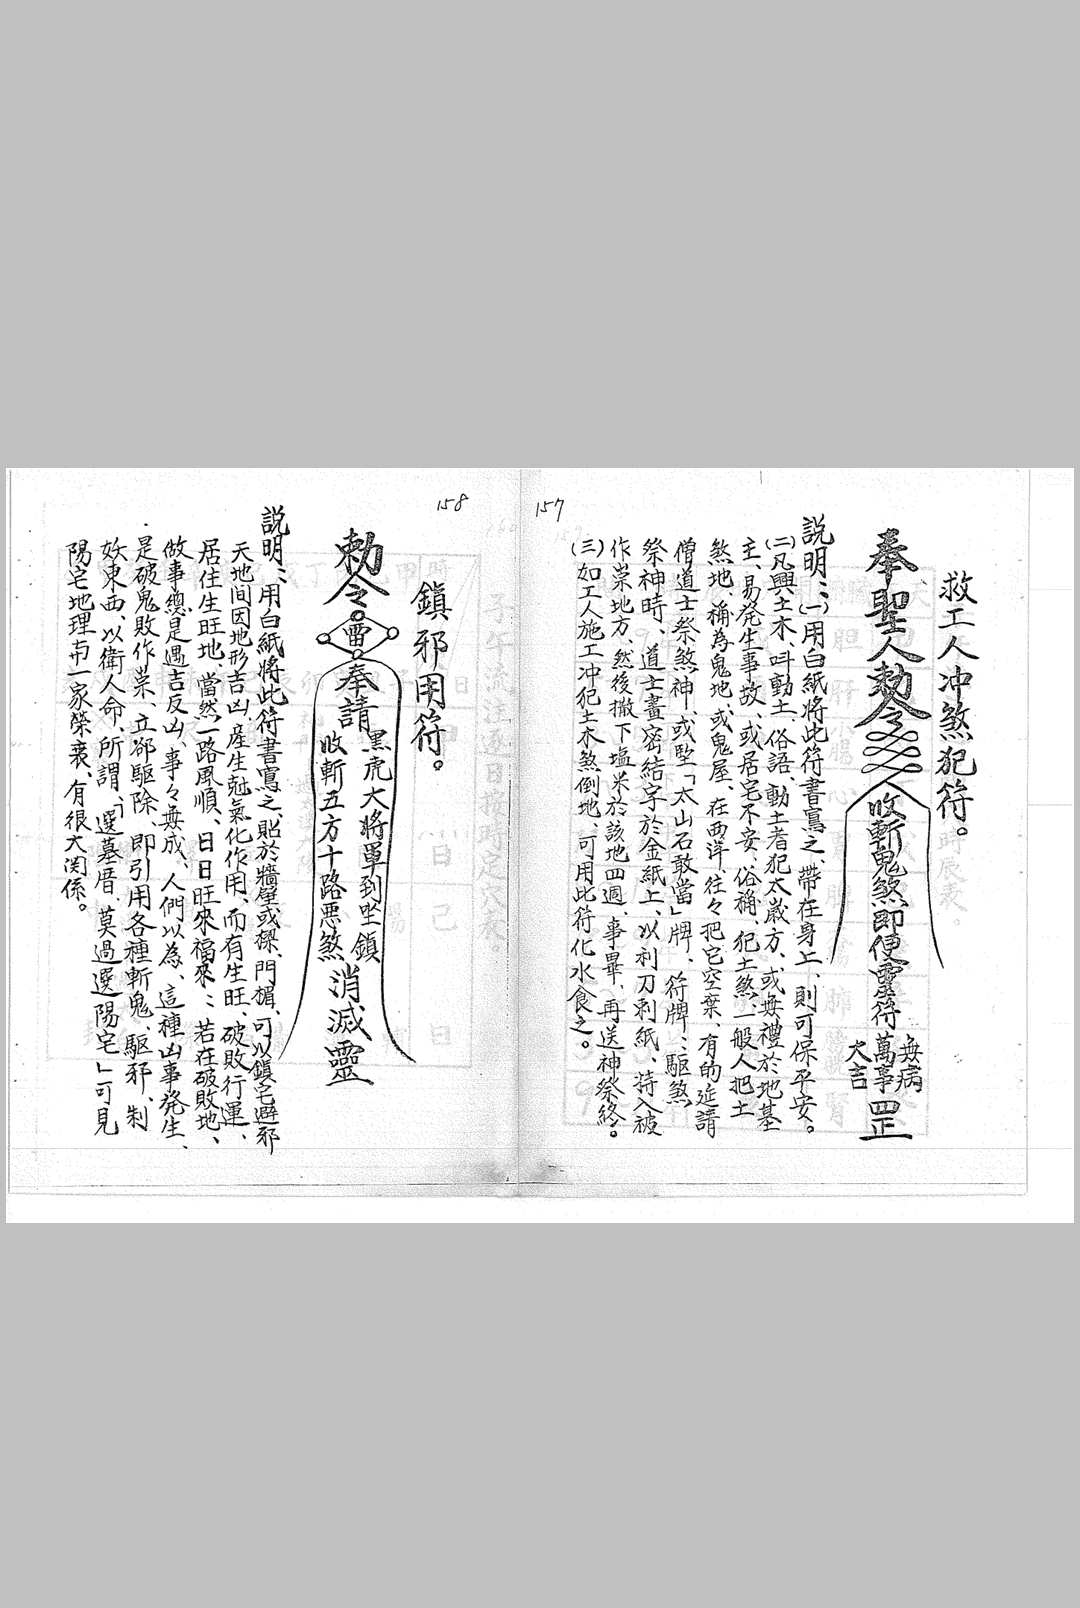 157
救工人冲煞犯符。
奉聖人勅令
收斬鬼煞即使靈符
無病
萬事
大吉
罡
説明：(一)用白紙將此符書寫之、帶在身上、則可保平安。
(二)凡興土木、叫動土、俗語、動土者犯太歲方、或毎禮於地基
主、易発生事故、或居宅不安、俗稱、犯土煞、一般人把土
煞地、稱為鬼地、或鬼屋、在西洋、往々把它空棄、有的延請
僧道士祭煞神、或堅「太山石敢當」牌、符牌：駆煞
祭神時、道士畫密結字於金紙上、以利刀刺紙、持入被
作祟地方、然後撒下塩米於該地四週、事畢、再送神祭終。
(三)如工人施工冲犯土木煞倒地、可用此符化水食之。
158
鎮邪用符。
勅令
雷
奉請
黑虎大將軍到坐鎮
收斬五方十路悪煞
消滅靈
説明：用白紙將此符書寫之、貼於牆壁或樑、門楣、可以鎮宅避邪
天地间因地形吉凶、産生尅氣化作用、而有生旺、破敗行運、
居住生旺地、當然一路風順、日日旺來福來：若在破敗地、
做事總是遇吉反凶、事々毎成、人們以為、這種凶事発生、
是破鬼敗作祟、立卻駆除、即引用各種斬鬼、駆邪、制
妖東西、以衛人命、所謂、「選墓厝、莫過選陽宅」可見
陽宅地理与一家榮衰、有很大関係。